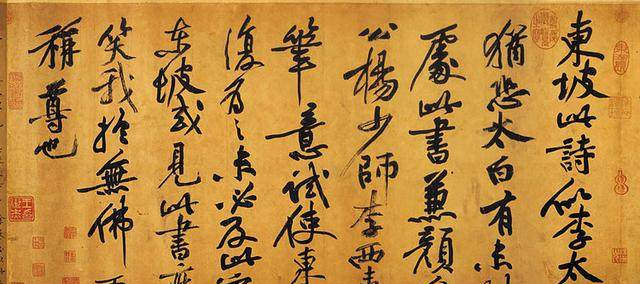 東坡此詩似李太
猶恐太白有未
處此書兼顏
公楊少師李西
筆意試使東
復為之未必及此
東坡或見此書
笑我於無佛
稱尊也